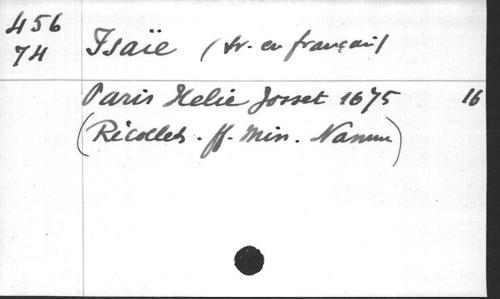 456
74 Isaïe (tr. en français)
Paris Helie Josset 1675 16
(Récollets. ff. Min. Namur)